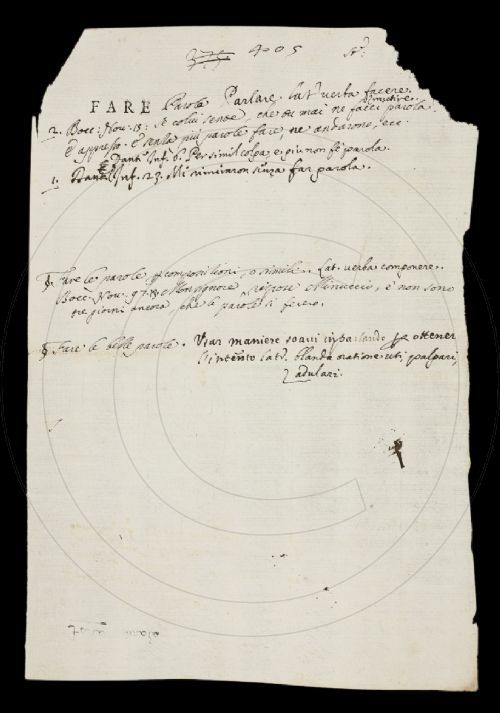 4005
FARE Parola Parlare. Lat. verba facere.
2. Bocc. Nov. 13: Se colui sense, che mai ne facci parola
E appresso. E senza più parole fare ne andarono, ecc.
Dant. Inf. 6. Per simil colpa, e più non fe parola.
1. Dant. Inf. 23. mi rimiraron sanza far parola.
§. Fare le parole composizioni, o simili. Lat. verba componere.
Bocc. Nov. 97. Monsignore rispose Minuccio, e' non sono
tre giorni ancora, che le parole si fecero.
§ Fare le belle parole. Usar maniere soavi in parlando ottener
l'intento lat. blanda oratione uti, palpari,
adulari.